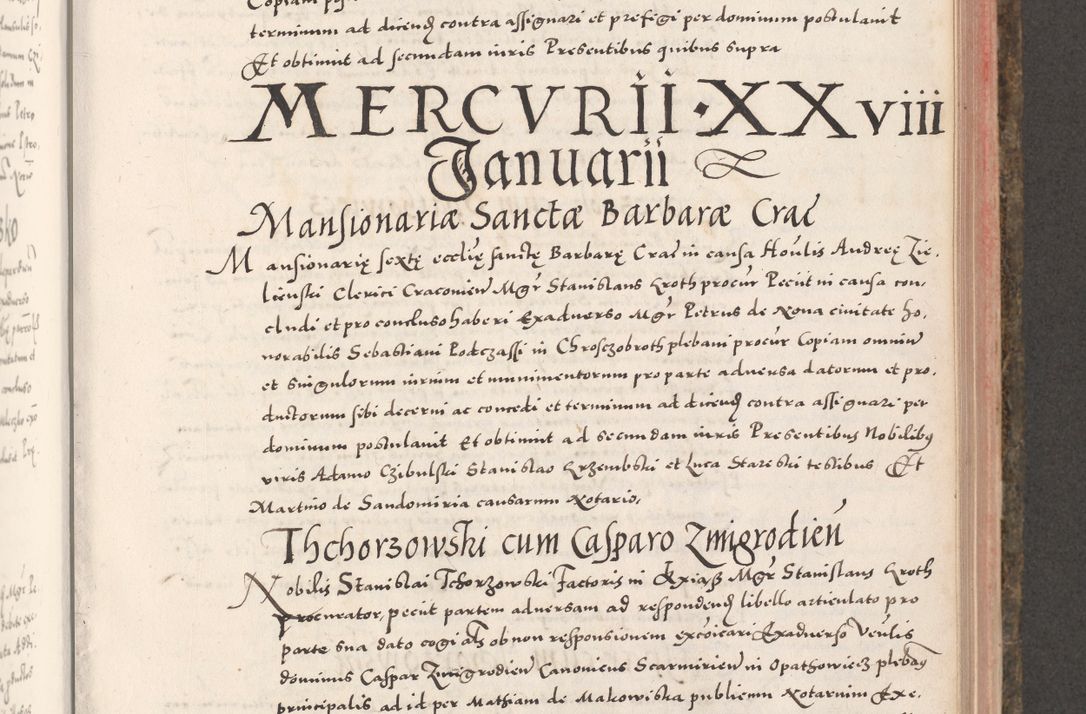 terminum ad dicend contra assignari et prefigi per dominum postulavit
Et obtinuit ad secundam iuris Presentibus quibus supra
MERCVRII · XXviii
Januarii
Mansionariæ Sanctæ Barbaræ Crac
Mansionarię sextę eccłię sanctę Barbarę Crac in causa Honlis Andreę Zie,
lienski Clerici Cracovien Mgr Stanislaus Kroth procur Peciit in causa con,
cludi et pro concluso haberi Exadverso Mgr Petrus de Nova civitate ho,
norabilis Sebastiani Podczassi in Chrosczobroth plebani procur Copiam omniu
et singulorum iurium et munimentorum pro parte adversa datorum et pro,
ductorum sibi decerni ac concedi et terminum ad dicend contra assignari per
dominum postulavit Et obtinuit ad secundam iuris Presentibus Nobilibus
viris Adamo Czibulski Stanislao Krzembski et Luca Stareski testibus Et
Martino de Sandomiria causarum Notario,
Thchorzowski cum Casparo Zmigrodien
Nobilis Stanislai Tchorzowski Factoris in Kxiąss Mgr Stanislaus Kroth
procurator, peciit partem adversam ad respondend libello articulato pro
parte sua dato cogi als ob non responsionem excoicari Exadverso Venlis
dominus Caspar Zmigrodien Canonicus Scarmirien in Opathowiecz plebanus
principalis ad id per Mathiam de Makowiska publicum Notarium Exe,